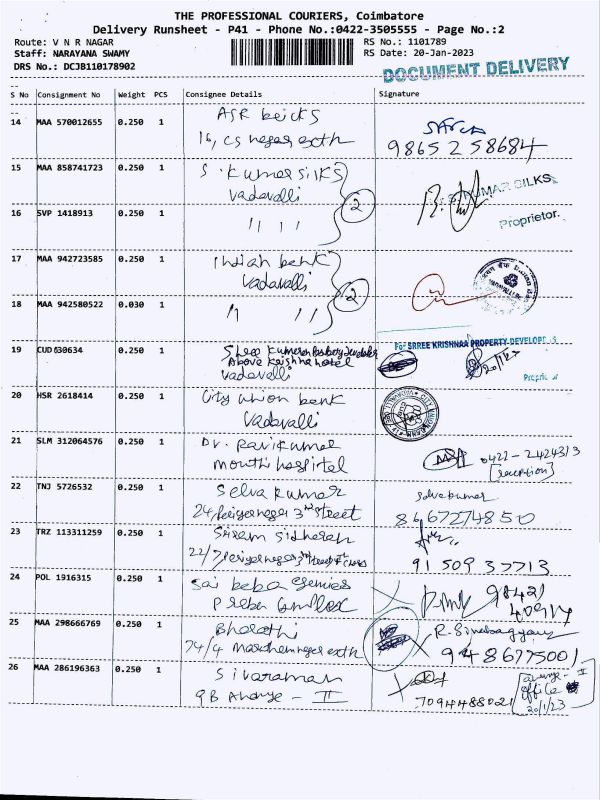 THE PROFESSIONAL COURIERS, Coimbatore
Delivery Runsheet - P41 - Phone No.:0422-3505555 - Page No.:2
Route: V N R NAGAR RS No.: 1101789
Staff: NARAYANA SWAMY RS Date: 20-Jan-2023
DRS No.: DCJB110178902
DOCUMENT DELIVERY
S No Consignment No Weight PCS Consignee Details Signature
14 MAA 570012655 0.250 1 ASR bricks
16, CS nagar extn 9865258684
15 MAA 858741723 0.250 1 S. Kumar SILKS
Vadavalli 2 KUMAR SILKS
16 SVP 1418913 0.250 1 " "
Proprietor.
17 MAA 942723585 0.250 1 Indian bank
Vadavalli 2
18 MAA 942580522 0.030 1 " "
For SRREE KRISHNAA PROPERTY DEVELOP S
19 CUD 630634 0.250 1 Shree Kumeran
Above Krishna hotel 20/1/23
Vadavalli
20 HSR 2618414 0.250 1 City union bank
Vadavalli
21 SLM 312064576 0.250 1 Dr. Ravikumar 0422-2424313
hospital [reception]
22 TNJ 5726532 0.250 1 Selva Kumar Selvakumar
24, Periyar nagar 3rd street 8667274850
23 TRZ 113311259 0.250 1 Sriram Sidharan
22/7 Periyar nagar 3rd street 9150937713
24 POL 1916315 0.250 1 Sai baba 98421
Complex 40917
25 MAA 298666769 0.250 1 Bharathi
74/4 extn 9486775001
26 MAA 286196363 0.250 1 Sivaraman
9B - II 7094488021
office
20/1/23